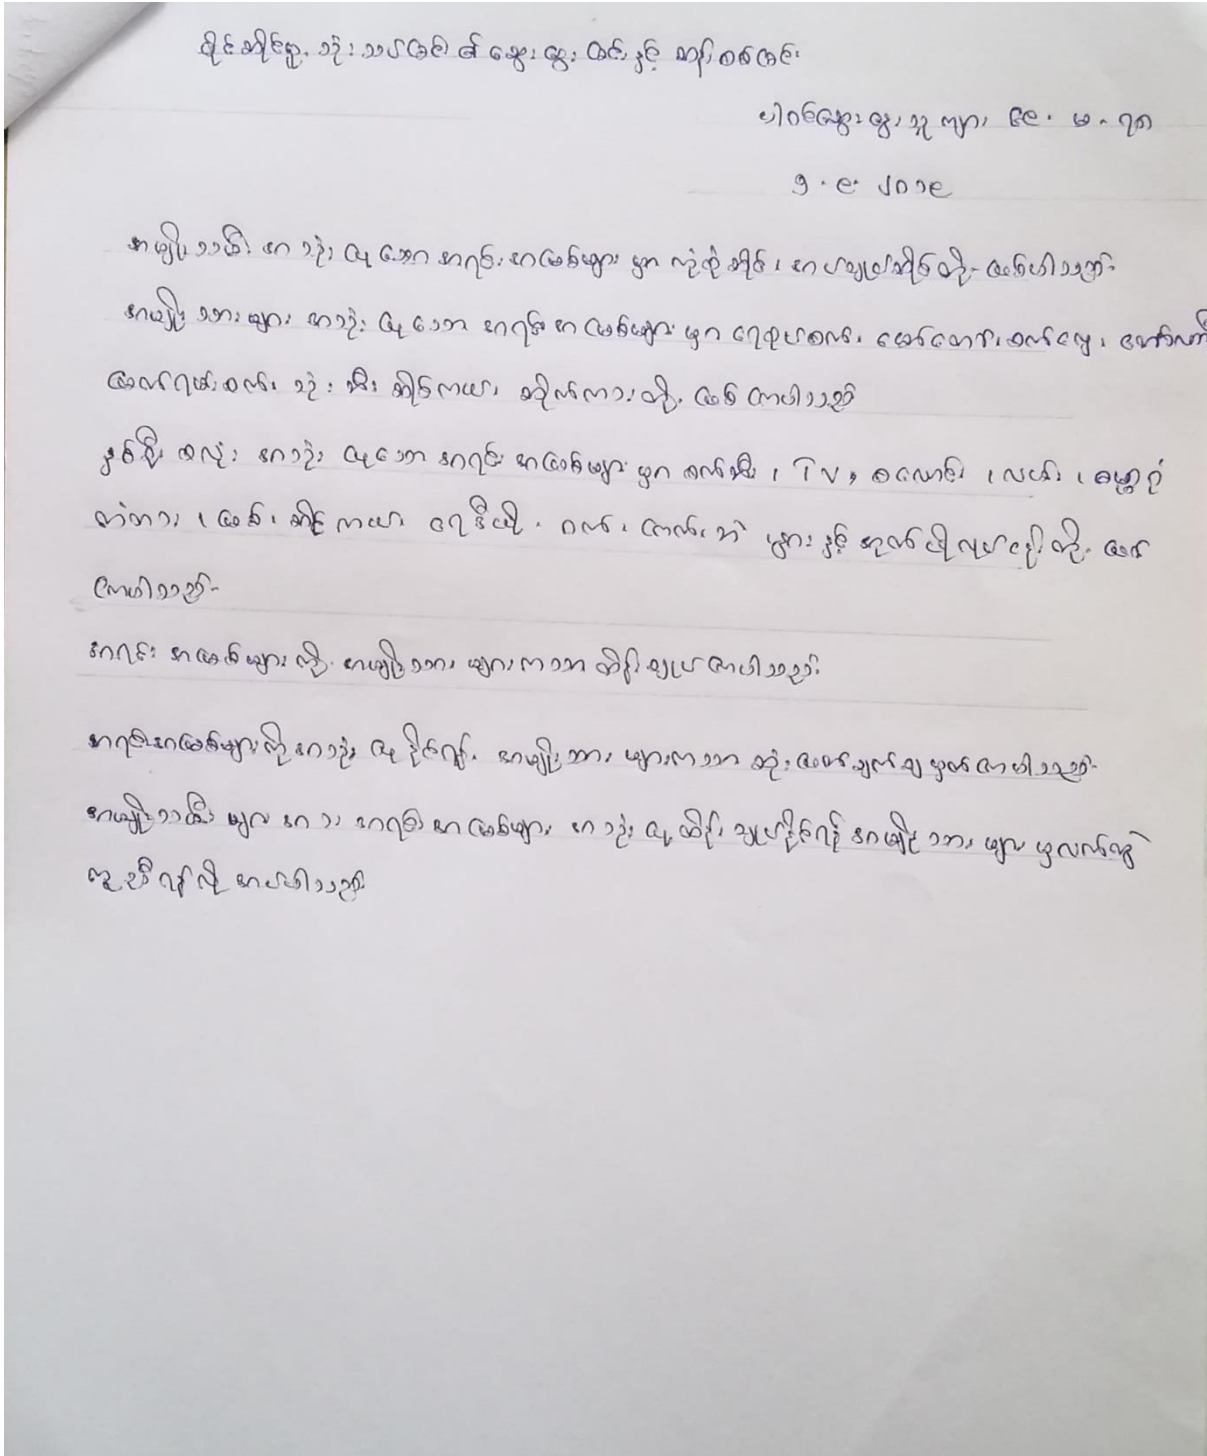 ပိုင်ဆိုင်မှု, သုံးသပ်ခြင်း၏ ဆွေးနွေးခြင်းနှင့် ဆန်းစစ်ခြင်း
ပါဝင်ဆွေးနွေးသူများ ၉
၅.၉.၂၀၁၉
အမျိုးသမီး အသုံးပြုသော အရင်းအမြစ်များမှာ ကုံထိုဆိုင်၊ အပချုပ်ဆိုင်တို့ ဖြစ်ပါသည်။
အမျိုးသားများ အသုံးပြုသော အရင်းအမြစ်များမှာ ရေစုပ်စက်၊ မော်တော်၊ စက်လှေ၊ ထော်လာဂျီ
မြက်ရိတ်စက်၊ သုံးဘီး ဆိုင်ကယ်၊ ဆိုက်ကားတို့ ဖြစ်ကြပါသည်
နှစ်ဦးစလုံး အသုံးပြုသော အရင်းအမြစ်များမှာ စက်ဘီး၊ TV, စလောင်း၊ လယ်၊ ဓမ္မာရုံ
တံတား၊ မြစ်၊ ဆိုင်ကယ်၊ ရေဒီယို၊ ဝက်၊ ကြက်၊ ဘဲ၊ နွားနှင့် အုတ်ဖိုလုပ်ငန်းတို့ ဖြစ်
ကြပါသည်။
အရင်းအမြစ်များကို အမျိုးသားများကသာ ထိန်းချုပ်ကြပါသည်။
အရင်းအမြစ်များကို အသုံးပြုနိုင်ရန် အမျိုးသားများကသာ ဆုံးဖြတ်ချက်ချမှတ်ကြပါသည်။
အမျိုးသမီးများအား အရင်းအမြစ်များ အသုံးပြုထိန်းချုပ်နိုင်ရန် အမျိုးသားများမှ လက်တွဲ
ကူညီရန်လိုအပ်ပါသည်။